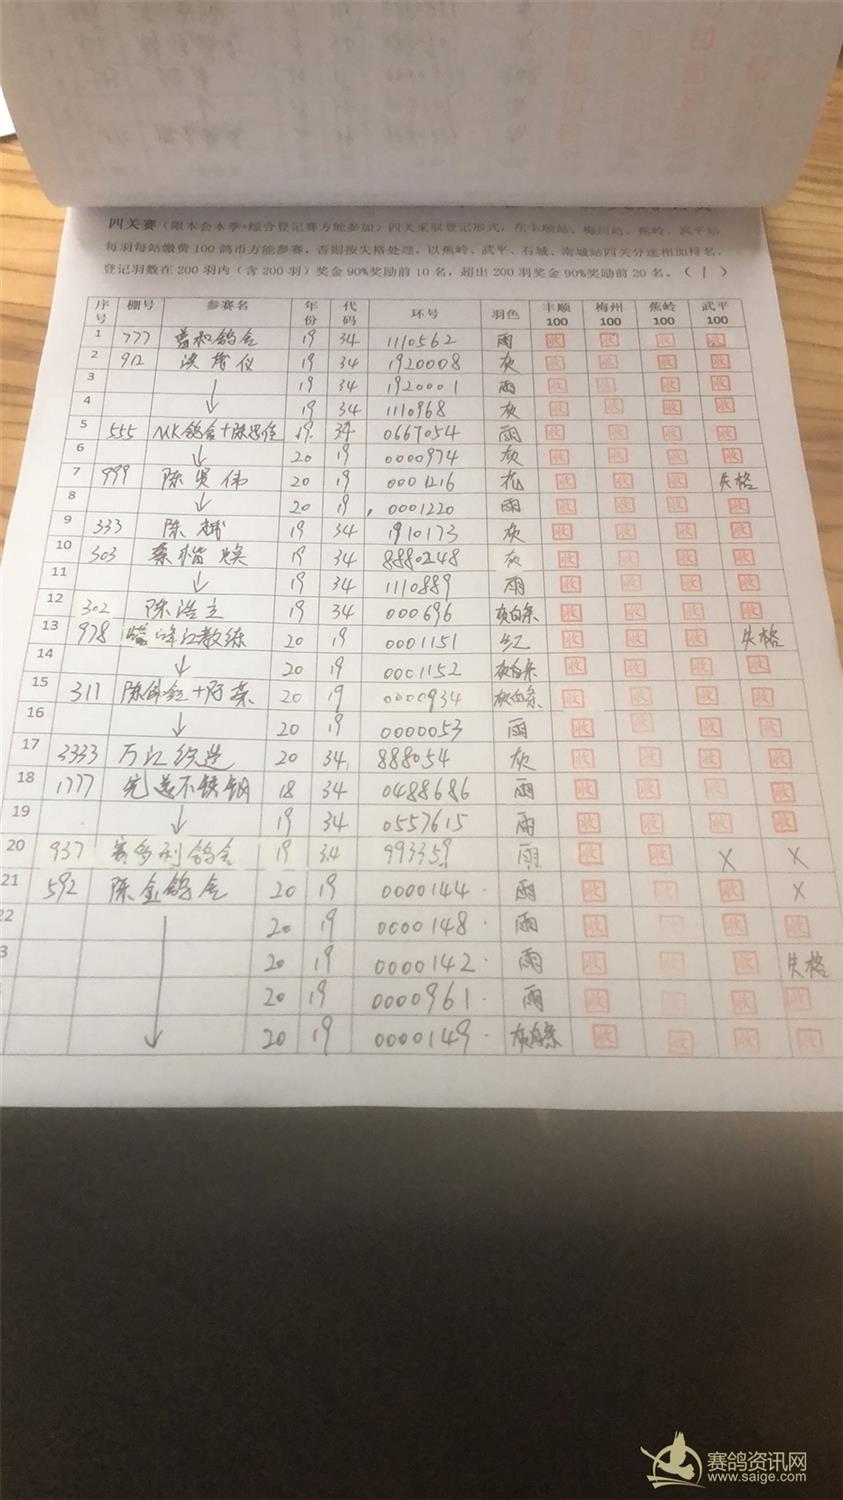 四关赛（限本会本季·综合登记赛方能参加）四关采取登记形式，在丰顺站、梅州站、蕉岭、武平站
每羽每站缴费100鸽币方能参赛，否则按失格处理，以蕉岭、武平、石城、南城站四关分速相加排名，
登记羽数在200羽内（含200羽）奖金90%奖励前10名，超出200羽奖金90%奖励前20名。（1）
序号 棚号 参赛名 年份 代码 环号 羽色 丰顺100 梅州100 蕉岭100 武平100
1 777 鸽舍 19 34 1110562 雨 收 收 收 收
2 912 仪 19 34 1920008 灰 收 收 收 收
3 19 34 1920001 雨 收 收 收 收
4 ↓ 19 34 1110968 灰 收 收 收 收
5 555 MK鸽舍+陈 19 34 0667054 雨 收 收 收 收
6 ↓ 20 19 0000974 灰 收 收 收 收
7 999 陈贤伟 20 19 0001216 花 收 收 收 失格
8 ↓ 20 19 0001220 雨 收 收 收 收
9 333 陈 19 34 1910173 灰 收 收 收 收
10 303 蔡楷焕 19 34 8880248 灰 收 收 收 收
11 ↓ 19 34 1110889 雨 收 收 收 收
12 302 陈浩立 19 34 000696 灰白条 收 收 收 收
13 978 峰江教练 20 19 0001151 红 收 收 收 失格
14 ↓ 20 19 0001152 灰白条 收 收 收 收
15 311 陈 20 19 0000934 灰白条 收 收 收 收
16 ↓ 20 19 0000053 雨 收 收 收 收
17 3333 万江 20 34 888054 灰 收 收 收 收
18 1777 不锈钢 18 34 0488686 雨 收 收 收 收
19 ↓ 19 34 0557615 雨 收 收 收 收
20 937 赛多利鸽舍 19 34 993359 雨 收 收 X X
21 592 陈金鸽舍 20 19 0000144 雨 收 收 收 X
22 20 19 0000148 雨 收 收 收 收
3 20 19 0000142 雨 收 收 收 失格
20 19 0000961 雨 收 收 收 收
↓ 20 19 0000149 灰白条 收 收 收 收
赛鸽资讯网
www.saige.com